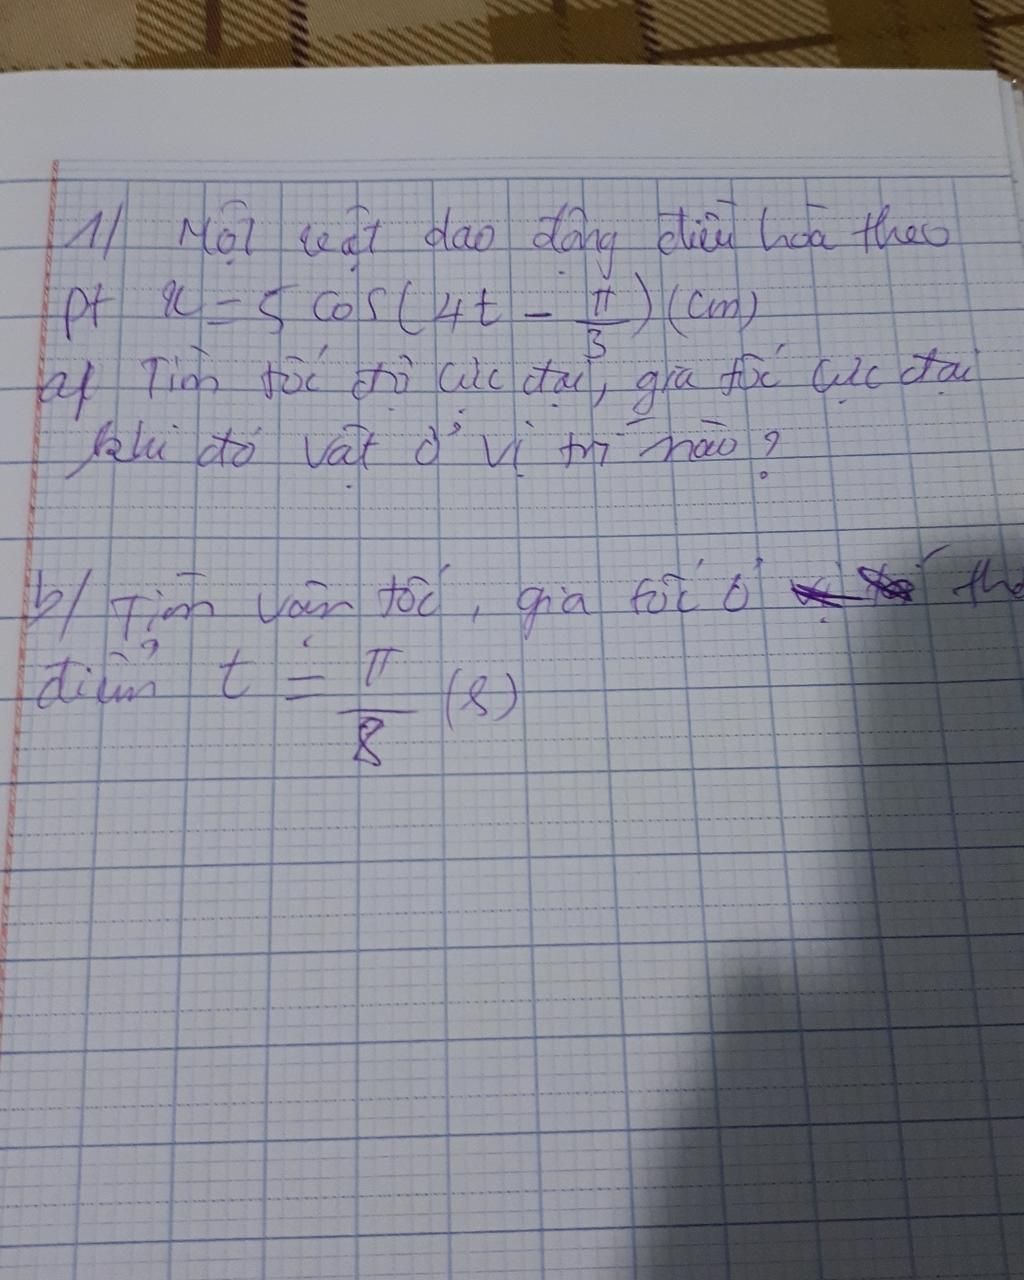 1/ Một vật dao động điều hoà theo
pt x = 5 cos(4t - π/3) (cm)
a/ Tính tốc độ cực đại, gia tốc cực đại
khi đó vật ở vị trí nào?
b/ Tính vận tốc, gia tốc ở
điểm t = π/8 (s)